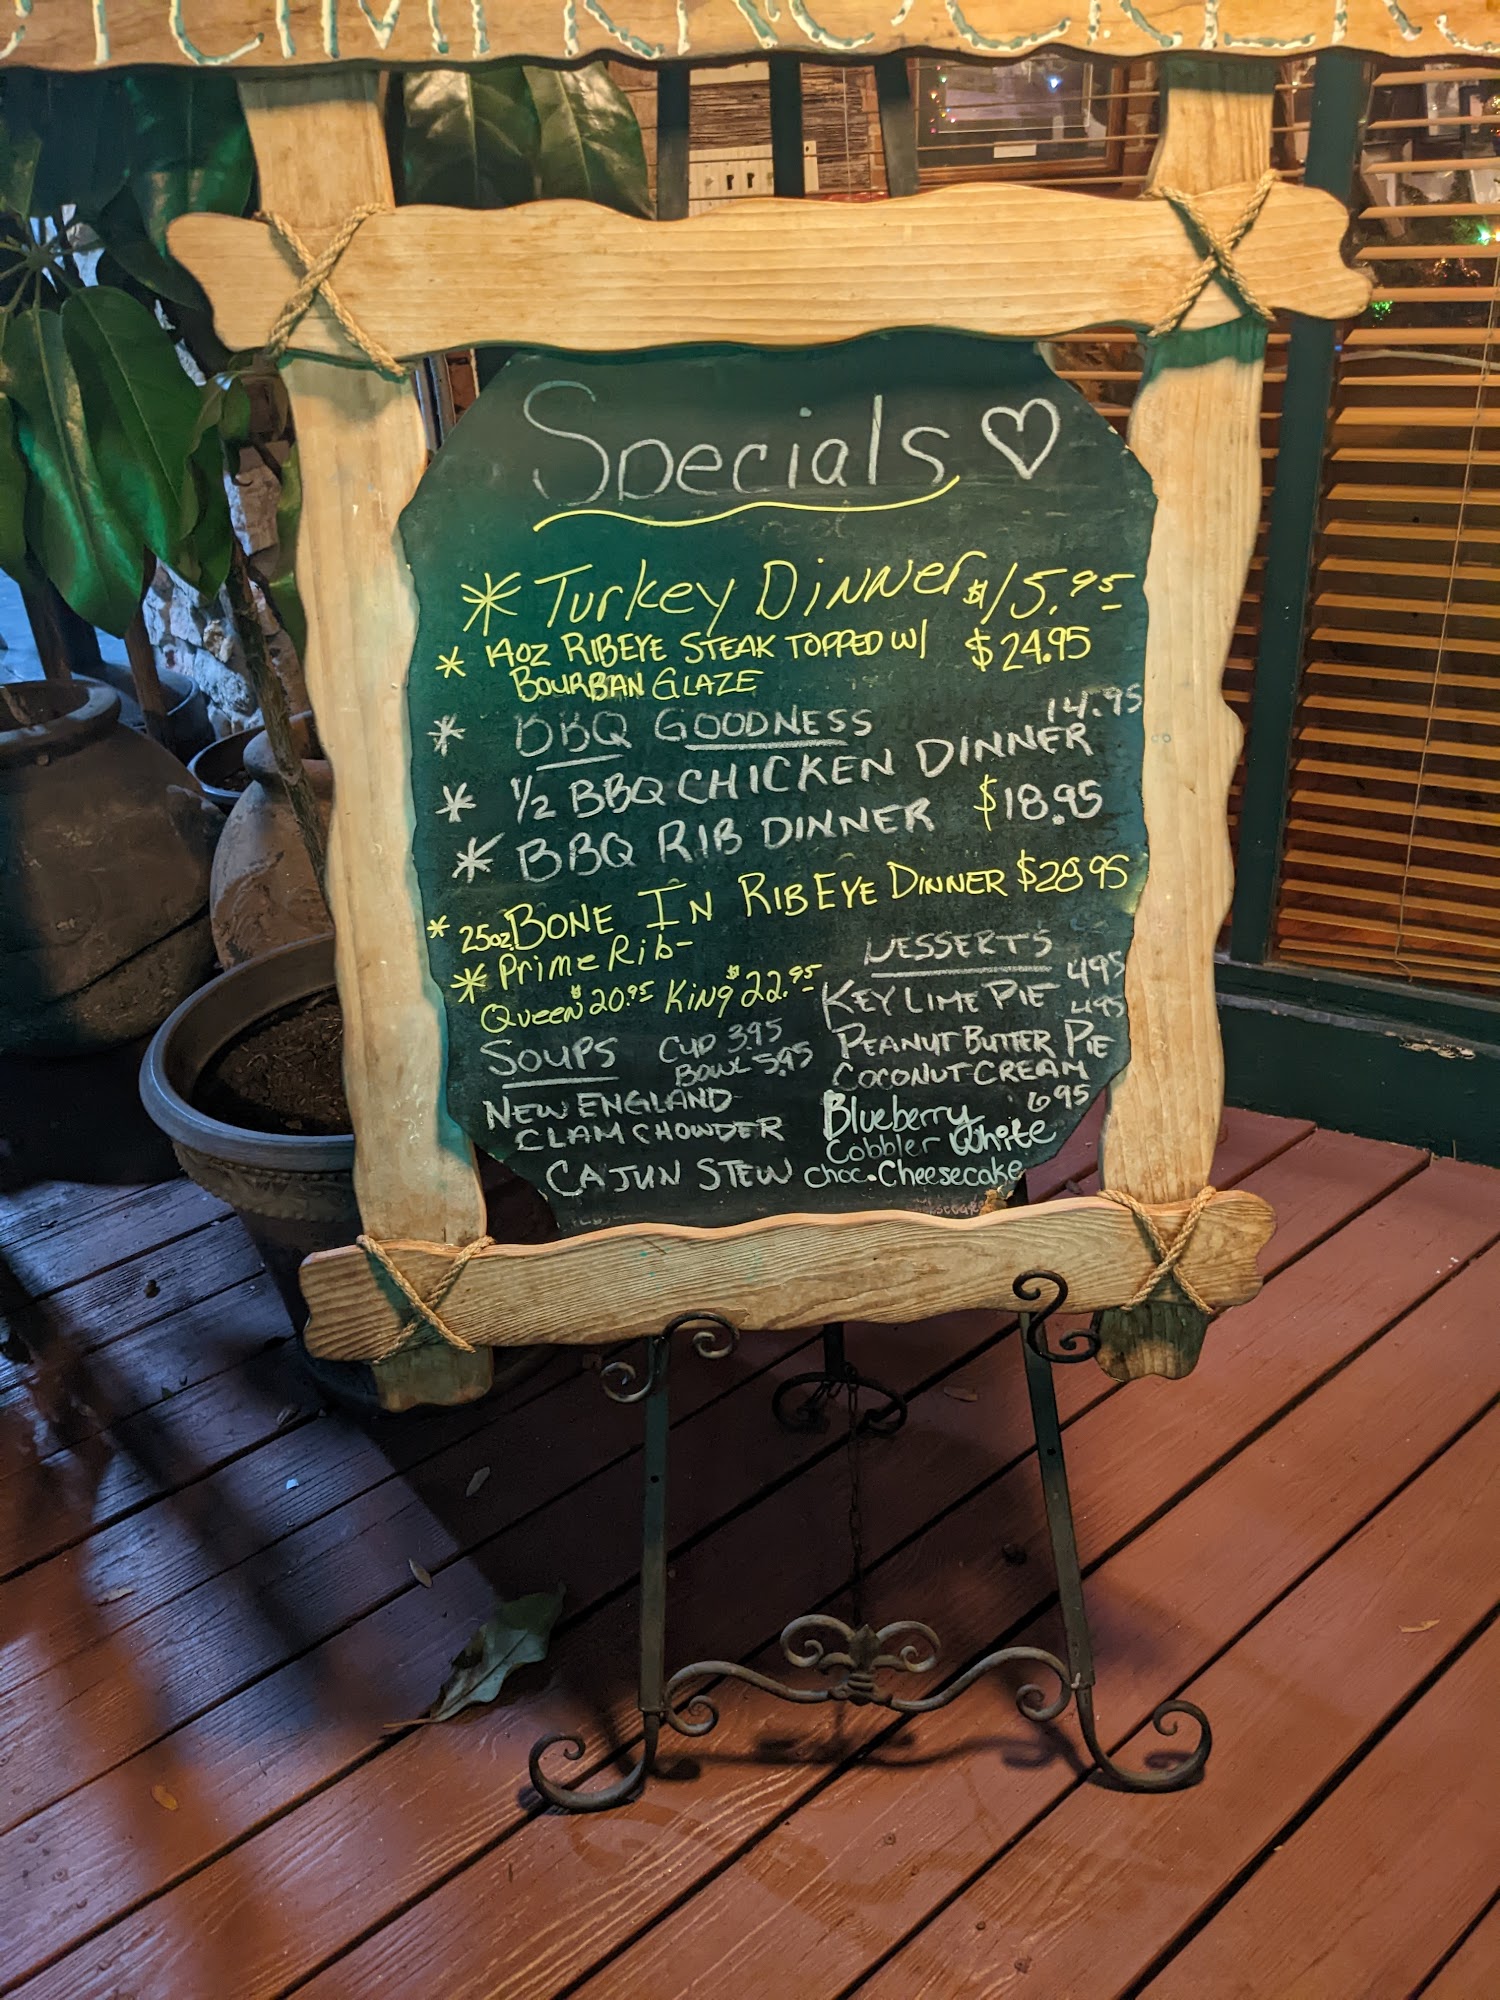 Specials ♡
* Turkey Dinner $15.95
* 14oz RIBEYE STEAK TOPPED W/ $24.95
BOURBAN GLAZE
* BBQ GOODNESS
14.95
* 1/2 BBQ CHICKEN DINNER
* BBQ RIB DINNER $18.95
* 25oz BONE IN RIBEYE DINNER $28.95
* Prime Rib-
Queen $20.95 King $22.95
SOUPS CUP 3.95
BOWL 5.95
NEW ENGLAND
CLAM CHOWDER
CAJUN STEW
DESSERTS
4.95
KEY LIME PIE
4.95
PEANUT BUTTER PIE
COCONUT CREAM
6.95
Blueberry
Cobbler White
Choc. Cheesecake